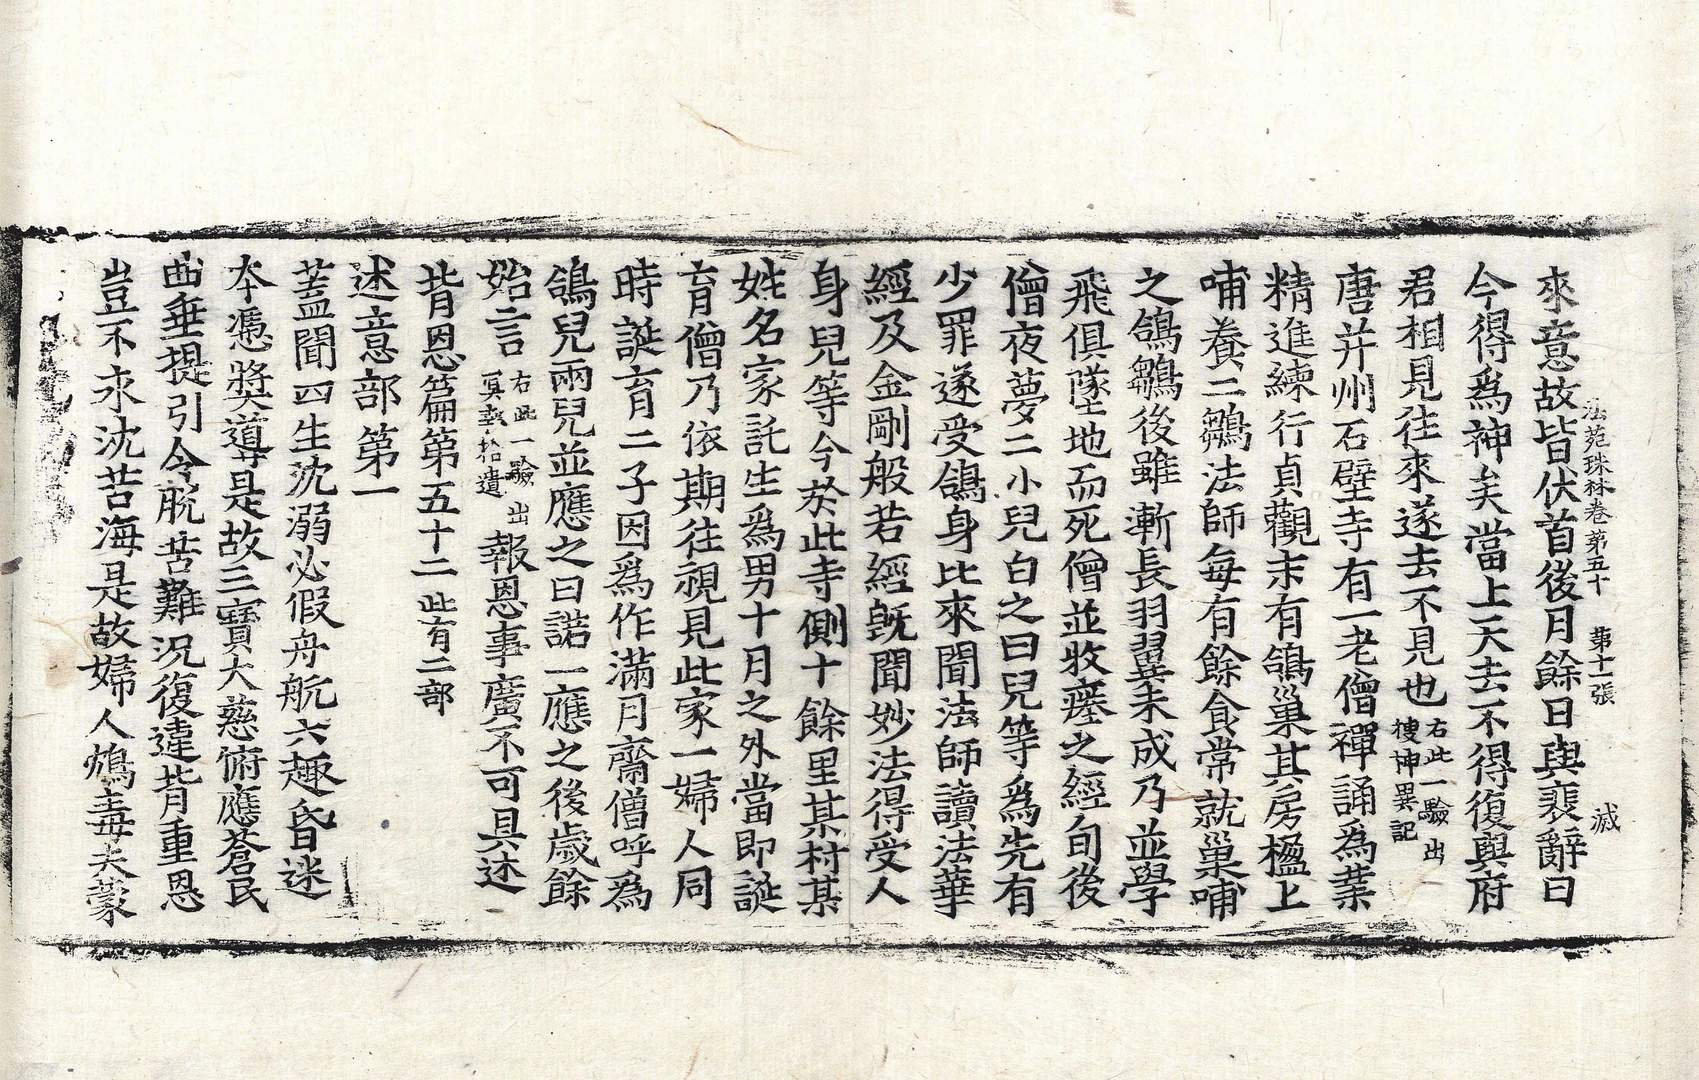 法苑珠林卷第五十　第十一張　滅
來意故皆伏首後月餘日與裴辭曰
今得爲神矣當上天去不得復與府
君相見往來遂去不見也右此一驗出搜神異記
唐幷州石壁寺有一老僧禪誦爲業
精進練行貞觀末有鴿巢其房楹上
哺養二鶵法師每有餘食常就巢哺
之鴿鶵後雖漸長羽翼未成乃並學
飛俱墜地而死僧並收瘞之經旬後
僧夜夢二小兒白之曰兒等爲先有
少罪遂受鴿身比來聞法師讀法華
經及金剛般若經旣聞妙法得受人
身兒等今於此寺側十餘里某村某
姓名家託生爲男十月之外當即誕
育僧乃依期往視見此家一婦人同
時誕育二子因爲作滿月齋僧呼爲
鴿兒兩兒並應之曰諾一應之後歲餘
始言右此一驗出冥報拾遺報恩事廣不可具述
背恩篇第五十二此有二部
述意部第一
蓋聞四生沈溺必假舟航六趣昏迷
本憑獎導是故三寶大慈俯應蒼民
曲垂提引令脫苦難況復違背重恩
豈不永沈苦海是故婦人鴆毒夫蒙